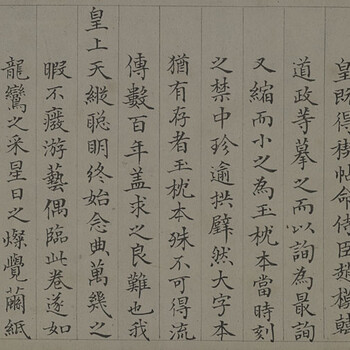 皇既得稧帖命侍臣趙模韓
道政等摹之而以詢為最詢
又縮而小之為玉枕本當時刻
之禁中珍逾拱璧然大字本
猶有存者玉枕本殊不可得流
傳數百年盖求之良難也我
皇上天縱聰明終始念典萬幾之
暇不癈游藝偶臨此卷遂如
龍鸞之采星日之燦覺繭紙